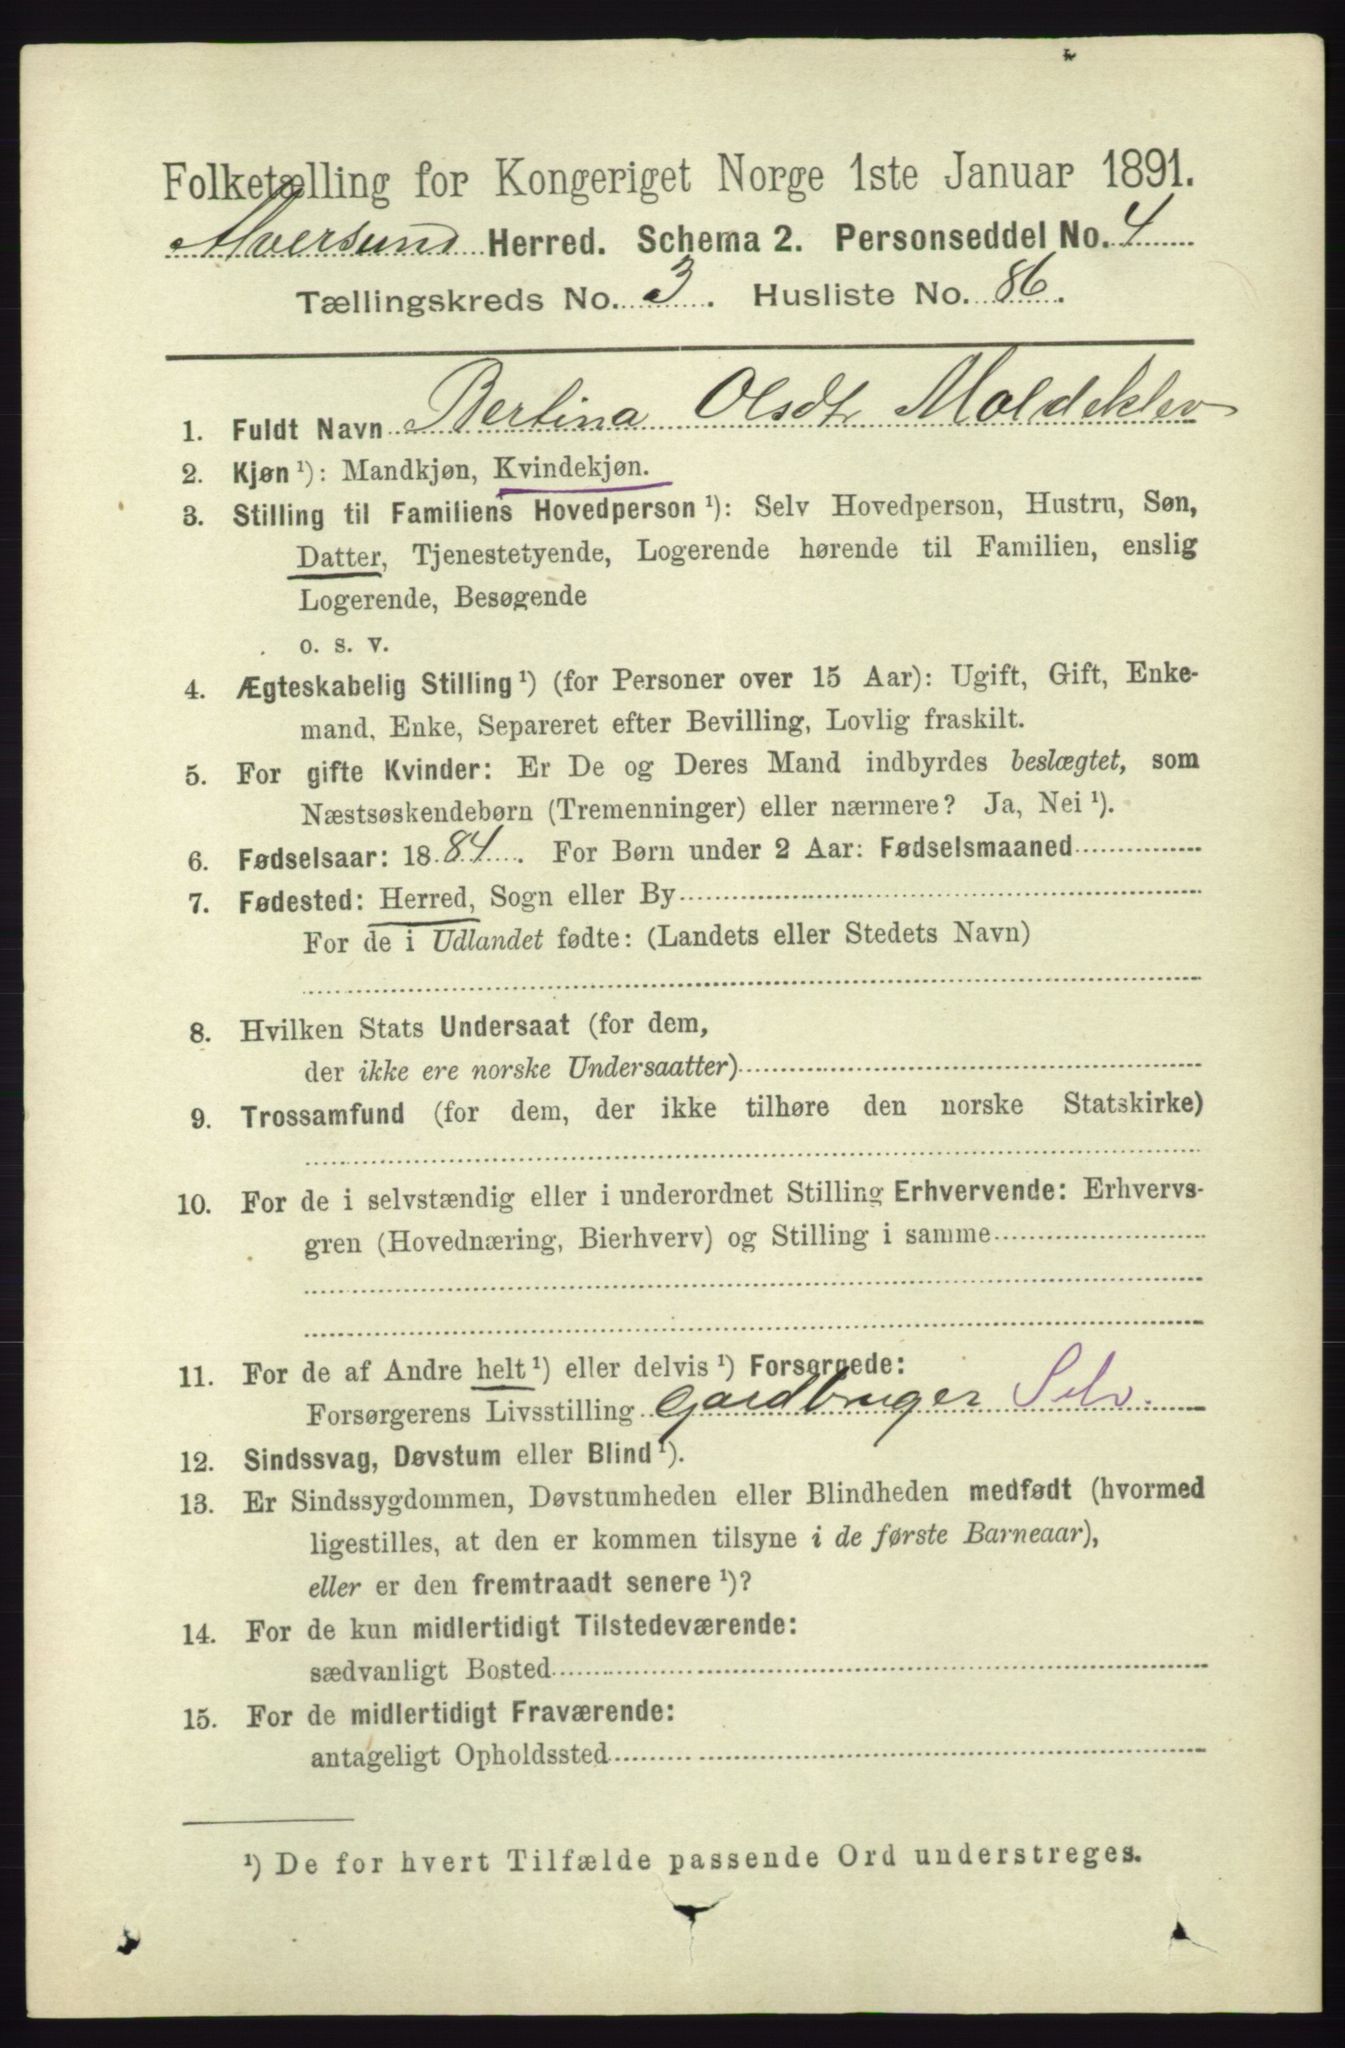 Folketælling for Kongeriget Norge 1ste Januar 1891.
Alversund Herred. Schema 2. Personseddel No. 4
Tællingskreds No. 3. Husliste No. 86.
1. Fuldt Navn Bertina Olsdtr Moldeklev
2. Kjøn ¹): Mandkjøn, Kvindekjøn.
3. Stilling til Familiens Hovedperson ¹): Selv Hovedperson, Hustru, Søn,
Datter, Tjenestetyende, Logerende hørende til Familien, enslig
Logerende, Besøgende
o. s. v.
4. Ægteskabelig Stilling ¹) (for Personer over 15 Aar): Ugift, Gift, Enke-
mand, Enke, Separeret efter Bevilling, Lovlig fraskilt.
5. For gifte Kvinder: Er De og Deres Mand indbyrdes beslægtet, som
Næstsøskendebørn (Tremenninger) eller nærmere? Ja, Nei ¹).
6. Fødselsaar: 1884. For Børn under 2 Aar: Fødselsmaaned
7. Fødested: Herred, Sogn eller By
For de i Udlandet fødte: (Landets eller Stedets Navn)
8. Hvilken Stats Undersaat (for dem,
der ikke ere norske Undersaatter)
9. Trossamfund (for dem, der ikke tilhøre den norske Statskirke)
10. For de i selvstændig eller i underordnet Stilling Erhvervende: Erhvervs-
gren (Hovednæring, Bierhverv) og Stilling i samme
11. For de af Andre helt ¹) eller delvis ¹) Forsørgede:
Forsørgerens Livsstilling Gardbruger Selv.
12. Sindssvag, Døvstum eller Blind ¹).
13. Er Sindssygdommen, Døvstumheden eller Blindheden medfødt (hvormed
ligestilles, at den er kommen tilsyne i de første Barneaar),
eller er den fremtraadt senere ¹)?
14. For de kun midlertidigt Tilstedeværende:
sædvanligt Bosted
15. For de midlertidigt Fraværende:
antageligt Opholdssted
¹) De for hvert Tilfælde passende Ord understreges.